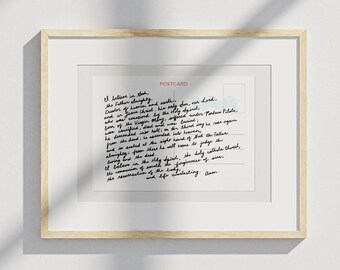 POSTCARD
I believe in God,
the Father almighty,
Creator of heaven and earth,
and in Jesus Christ, his only Son, our Lord,
who was conceived by the Holy Spirit,
born of the Virgin Mary, suffered under Pontius Pilate,
was crucified, died and was buried;
he descended into hell; on the third day he rose again
from the dead; he ascended into heaven,
and is seated at the right hand of God the Father
almighty; from there he will come to judge the
living and the dead.
I believe in the Holy Spirit, the holy catholic Church,
the communion of saints, the forgiveness of sins,
the resurrection of the body,
and life everlasting. Amen.